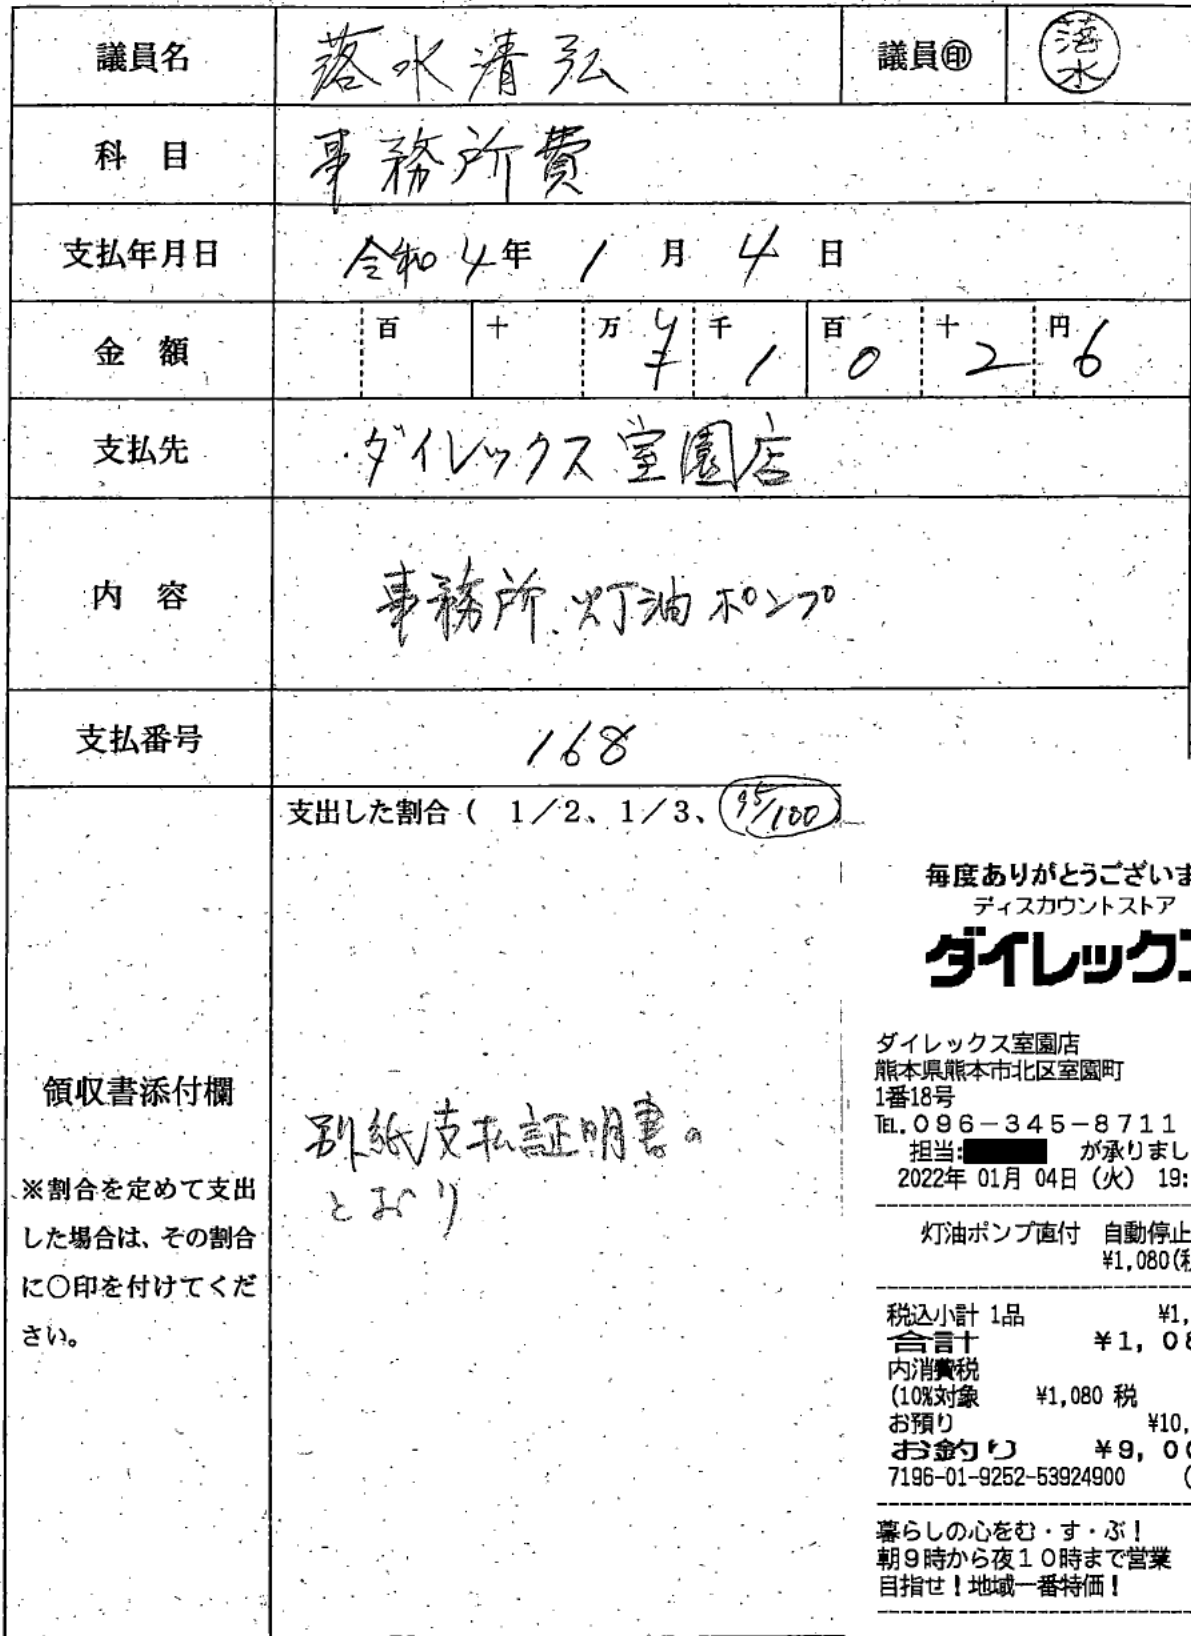 議員名 落水清弘 議員㊞ 落水
科 目 事務所費
支払年月日 令和4年 1月 4日
金 額 百 十 万 ¥ 千 1 百 0 十 2 円 6
支払先 ダイレックス室園店
内 容 事務所 灯油ポンプ
支払番号 168
支出した割合( 1/2、1/3、95/100)
領収書添付欄
※割合を定めて支出
した場合は、その割合
に〇印を付けてくだ
さい。
別紙支払証明書の
とおり
毎度ありがとうございま
ディスカウントストア
ダイレック
ダイレックス室園店
熊本県熊本市北区室園町
1番18号
TEL.096-345-8711
担当: が承りまし
2022年 01月 04日 (火) 19:
灯油ポンプ直付 自動停止
¥1,080(税
税込小計 1品 ¥1,
合計 ¥1, 08
内消費税
(10%対象 ¥1,080 税
お預り ¥10,
お釣り ¥9, 00
7196-01-9252-53924900 (
暮らしの心をむ・す・ぶ!
朝9時から夜10時まで営業
目指せ!地域一番特価!